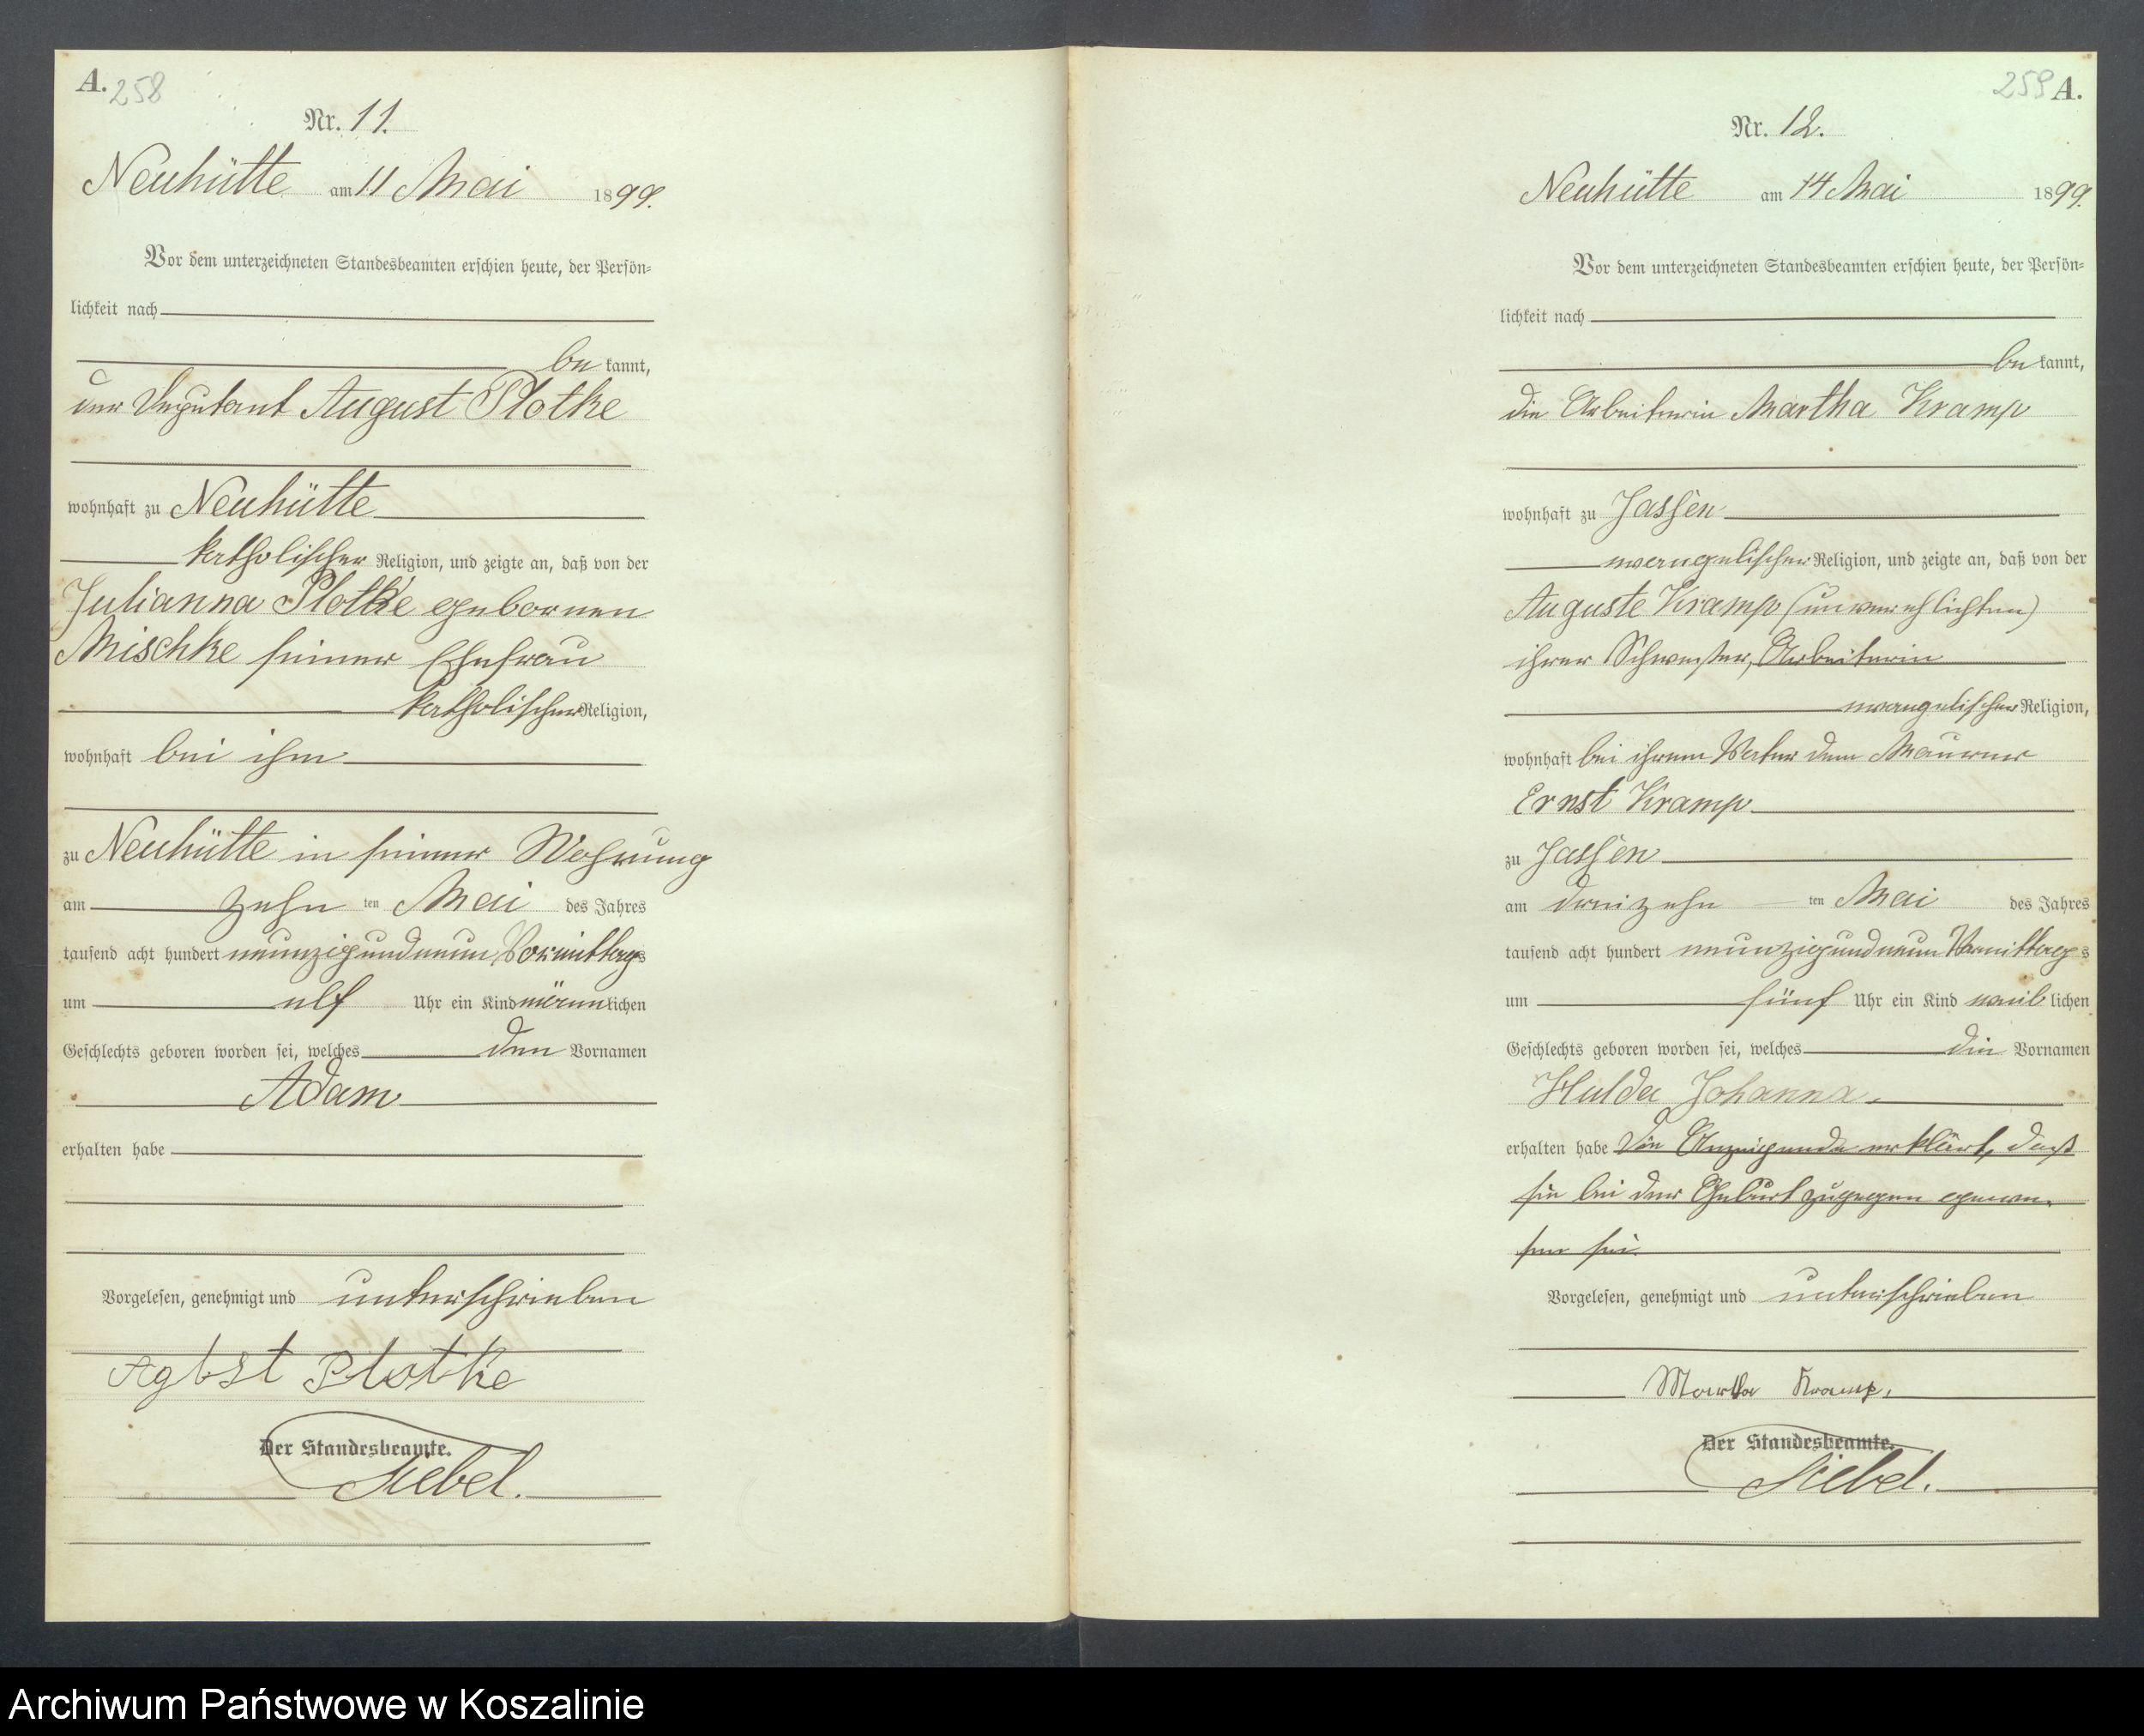 A. 258
Nr. 11.
Neuhütte am 11 Mai 1899.
Vor dem unterzeichneten Standesbeamten erschien heute, der Persön-
lichkeit nach
be kannt,
der Deputant August Plotke
wohnhaft zu Neuhütte
katholischer Religion, und zeigte an, daß von der
Julianna Plotke gebornen
Mischke seiner Ehefrau
katholischer Religion,
wohnhaft bei ihm
zu Neuhütte in seiner Wohnung
am zehn ten Mai des Jahres
tausend acht hundert neunzigundneun Vormittags
um elf Uhr ein Kind männlichen
Geschlechts geboren worden sei, welches den Vornamen
Adam
erhalten habe
Vorgelesen, genehmigt und unterschrieben
Agbst Plotke
Der Standesbeamte.
Siebel.
259 A.
Nr. 12.
Neuhütte am 14 Mai 1899.
Vor dem unterzeichneten Standesbeamten erschien heute, der Persön-
lichkeit nach
be kannt,
die Arbeiterin Martha Kramp
wohnhaft zu Jassen
evangelischer Religion, und zeigte an, daß von der
Auguste Kramp (unverehlichten)
ihrer Schwester, Arbeiterin
evangelischer Religion,
wohnhaft bei ihrem Vater dem Maurer
Ernst Kramp
zu Jassen
am dreizehn ten Mai des Jahres
tausend acht hundert neunzigundneun Vormittags
um fünf Uhr ein Kind weib lichen
Geschlechts geboren worden sei, welches die Vornamen
Hulda Johanna
erhalten habe Die Anzeigende erklärt, daß
sie bei der Geburt zugegen gewe-
sen sei.
Vorgelesen, genehmigt und unterschrieben
Martha Kramp.
Der Standesbeamte.
Siebel.
Archiwum Państwowe w Koszalinie